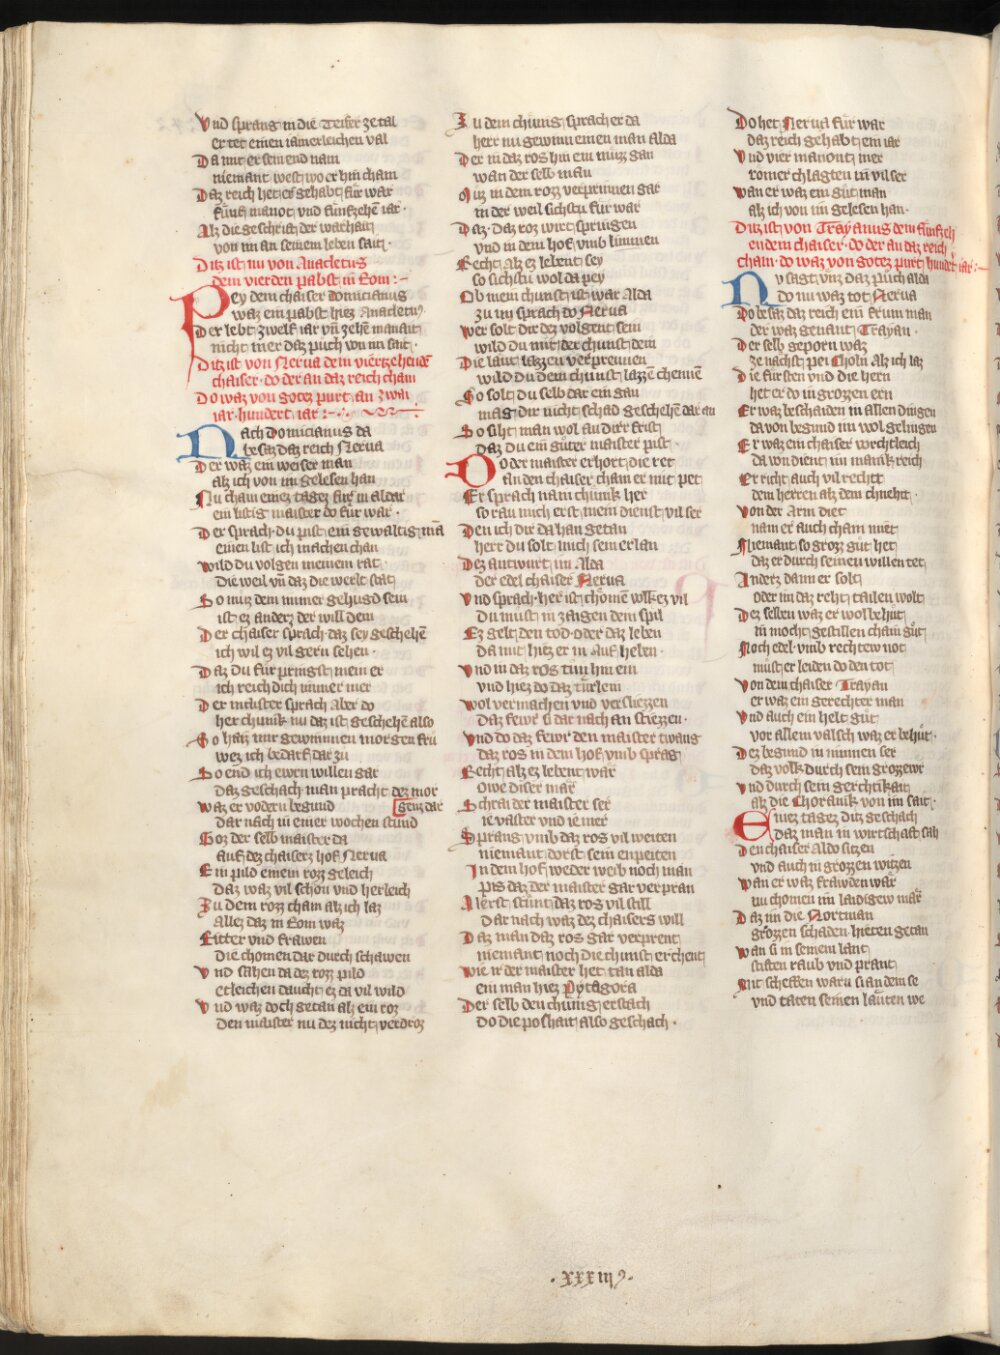 Vnd sprang in die Teifer ze tal
er tet einen iamerleichen val
Da mit er sein end nam
niemant west wo er hin cham
Daz reich het er gehabt für war
fünf manot vnd fünfzehē iar ·
Alz die geschrift der warhait
von im an seinem leben sait ·
Ditz ist nu von Anacletus
dem vierden pabst in Rom : ~
Pey dem chaiser domicianus
waz ein pabst hiez Anacletꝰ
Der lebt zwelf iar vn̄ zehē manait
nicht mer daz puch von im sait ·
Ditz ist von Nerua dem vierzehendē
chaiser · do der an daz reich cham
Do waz von gotez purt an zwai
iar hundert iar : ~
Nach Domicianus da
besaz daz reich Nerua
Der waz ein weiser man
alz ich von im gelesen han
Nu cham einez tagez für in aldar
ein listig maister do für war ·
Der sprach · du pist ein gewaltig mā
einen list ich machen chan
wild du volgen meinem rat
die weil vn̄ daz die werlt stat
So muz dem immer gehugd sein
ist ez anderz der will dein
Der chaiser sprach · daz sey geschehē
ich wil ez vil gern sehen ·
Daz du für pringst mein er
ich reich dich immer mer
Der maister sprach Aber do
her chunik nu daz ist geschehē also
So haiz mir gewinnen morgen fru
wez ich bedarf dar zu
So end ich ewrn willen gar
daz geschach man pracht dez mor
waz er vodern begund genz dar
dar nach in einer wochen stund
Goz der selb maister da
auf dez chaiserz hof Nerua
Ein pild einem rozz geleich
Daz waz vil schon vnd herleich
Zu dem rozz cham alz ich laz
Allez daz in Rom waz
Ritter vnd frawen
die chomen dar durch schawen
Vnd sahen da dez rozz pild
etleichen daucht ez da vil wild
Vnd waz doch getan alz ein roz
den maister nu dez nicht verdroz
Zu dem chunig sprach er da
herr nu gewinn einen man alda
Der in daz ros hin ein muzz gan
wan der selb man
Muz in dem rozz verprinnen gar
in der weil sichstu für war
Daz · daz roz wirt springen
vnd in dem hof vmb limmen
Recht alz ez lebent sey
so sichstu wol da pey
Ob mein chunst ist war alda
zu im sprach do Nerua
wer solt dir dez volgent sein
wild du mit der chunst dein
Die laut lazzen verprennen
wild du dein chunst lazzē chennē
So solt du selb dar ein gan
mag dir nicht schad geschehē dar an
So siht man wol an dirr frist
daz du ein guter maister pist ·
Do der maister erhort die ret
an den chaiser cham er mit pet
Er sprach nain chunik her
so rau mich erst mein dienst vil ser
Den ich dir da han getan
herr du solt mich sein erlan
Dez antwurt im Alda
der edel chaiser Nerua
Vnd sprach · her ist chomē volkez vil
du must in zaigen dem spil
Ez gelt den tod · oder daz leben
da mit hiez er in Auf heben ·
Vnd in daz ros tun hin ein
vnd hiez do daz türlein
wol vermachen vnd versliezzen
daz fewr si dar nach an stiezzen ·
Vnd do daz fewr den maister twang
daz ros in dem hof vmb sprāg
Recht alz ez lebent war
owe diser mar
Schrai der maister ser
ie vaster vnd ie mer
Sprang vmb daz ros vil weiten
niemant dorst sein enpeiten
In dem hof weder weib noch man
pis daz der maister gar verpran
Alerst stunt daz ros vil still
dar nach waz dez chaisers will
Daz man daz ros gar verprent
niemant noch die chunst erchent
wie ir der maister het tan alda
ein man hiez Pytagora
Der selb den chunig erstach
do die poshait also geschach ·
Do het Nerua für war
daz reich gehabt ein iar
Vnd vier manont mer
romer chlagten in vil ser
wan er waz ein gut man
alz ich von im gelesen han ·
Ditz ist von Trayanus dem fünfzeh
endem chaiser · do der an daz reich
cham · do waz von gotez purt hundert iar : ~
Nv sagt vnz daz puch alda
do nu waz tot Nerua
Do besaz daz reich ein frum man
der waz genant Trayan ·
Der selb geporn waz
ze nächst pei Choln alz ich laz
Die fürsten vnd die hern
het er do in grozzen ern
Er waz beschaiden in allen dingen
da von begund im wol gelingen
Er waz ein chaiser vorchtleich
da von dient im manik reich
Er richt auch vil recht
dem herren alz dem chneht ·
Von der Arm diet
nam er auch cham miet
Niemant so grozz gut het
daz er durch seinen willen tet
Anderz dann er solt
oder im daz reht tailen wolt
Dez selben waz er wol behut
in mocht gestillen chain gut
Noch edel · vmb rechtew not
müst er leiden do den tot
Von dem chaiser Trayan
er waz ein gerechter man
Vnd auch ein helt gut
vor allem valsch waz er behut ·
Dez begund in minnen ser
daz volk durch sein grozzew er
Vnd durch sein gerchtikait
alz die Choranik von im sait ·
Einez tagez ditz geschach
daz man in wirtschaft sah
Den chaiser Aldo sitzen
vnd auch in grozzen witzen
wan er waz frawden war
im chomen im laidigew mar
Daz im die Nortman
grozzen schaden hieten getan
wan si in seinem lant
stiften raub vnd prant
Mit scheffen warn si an dem se
vnd taten seinen läuten we
· xxxiiij ꝰ ·